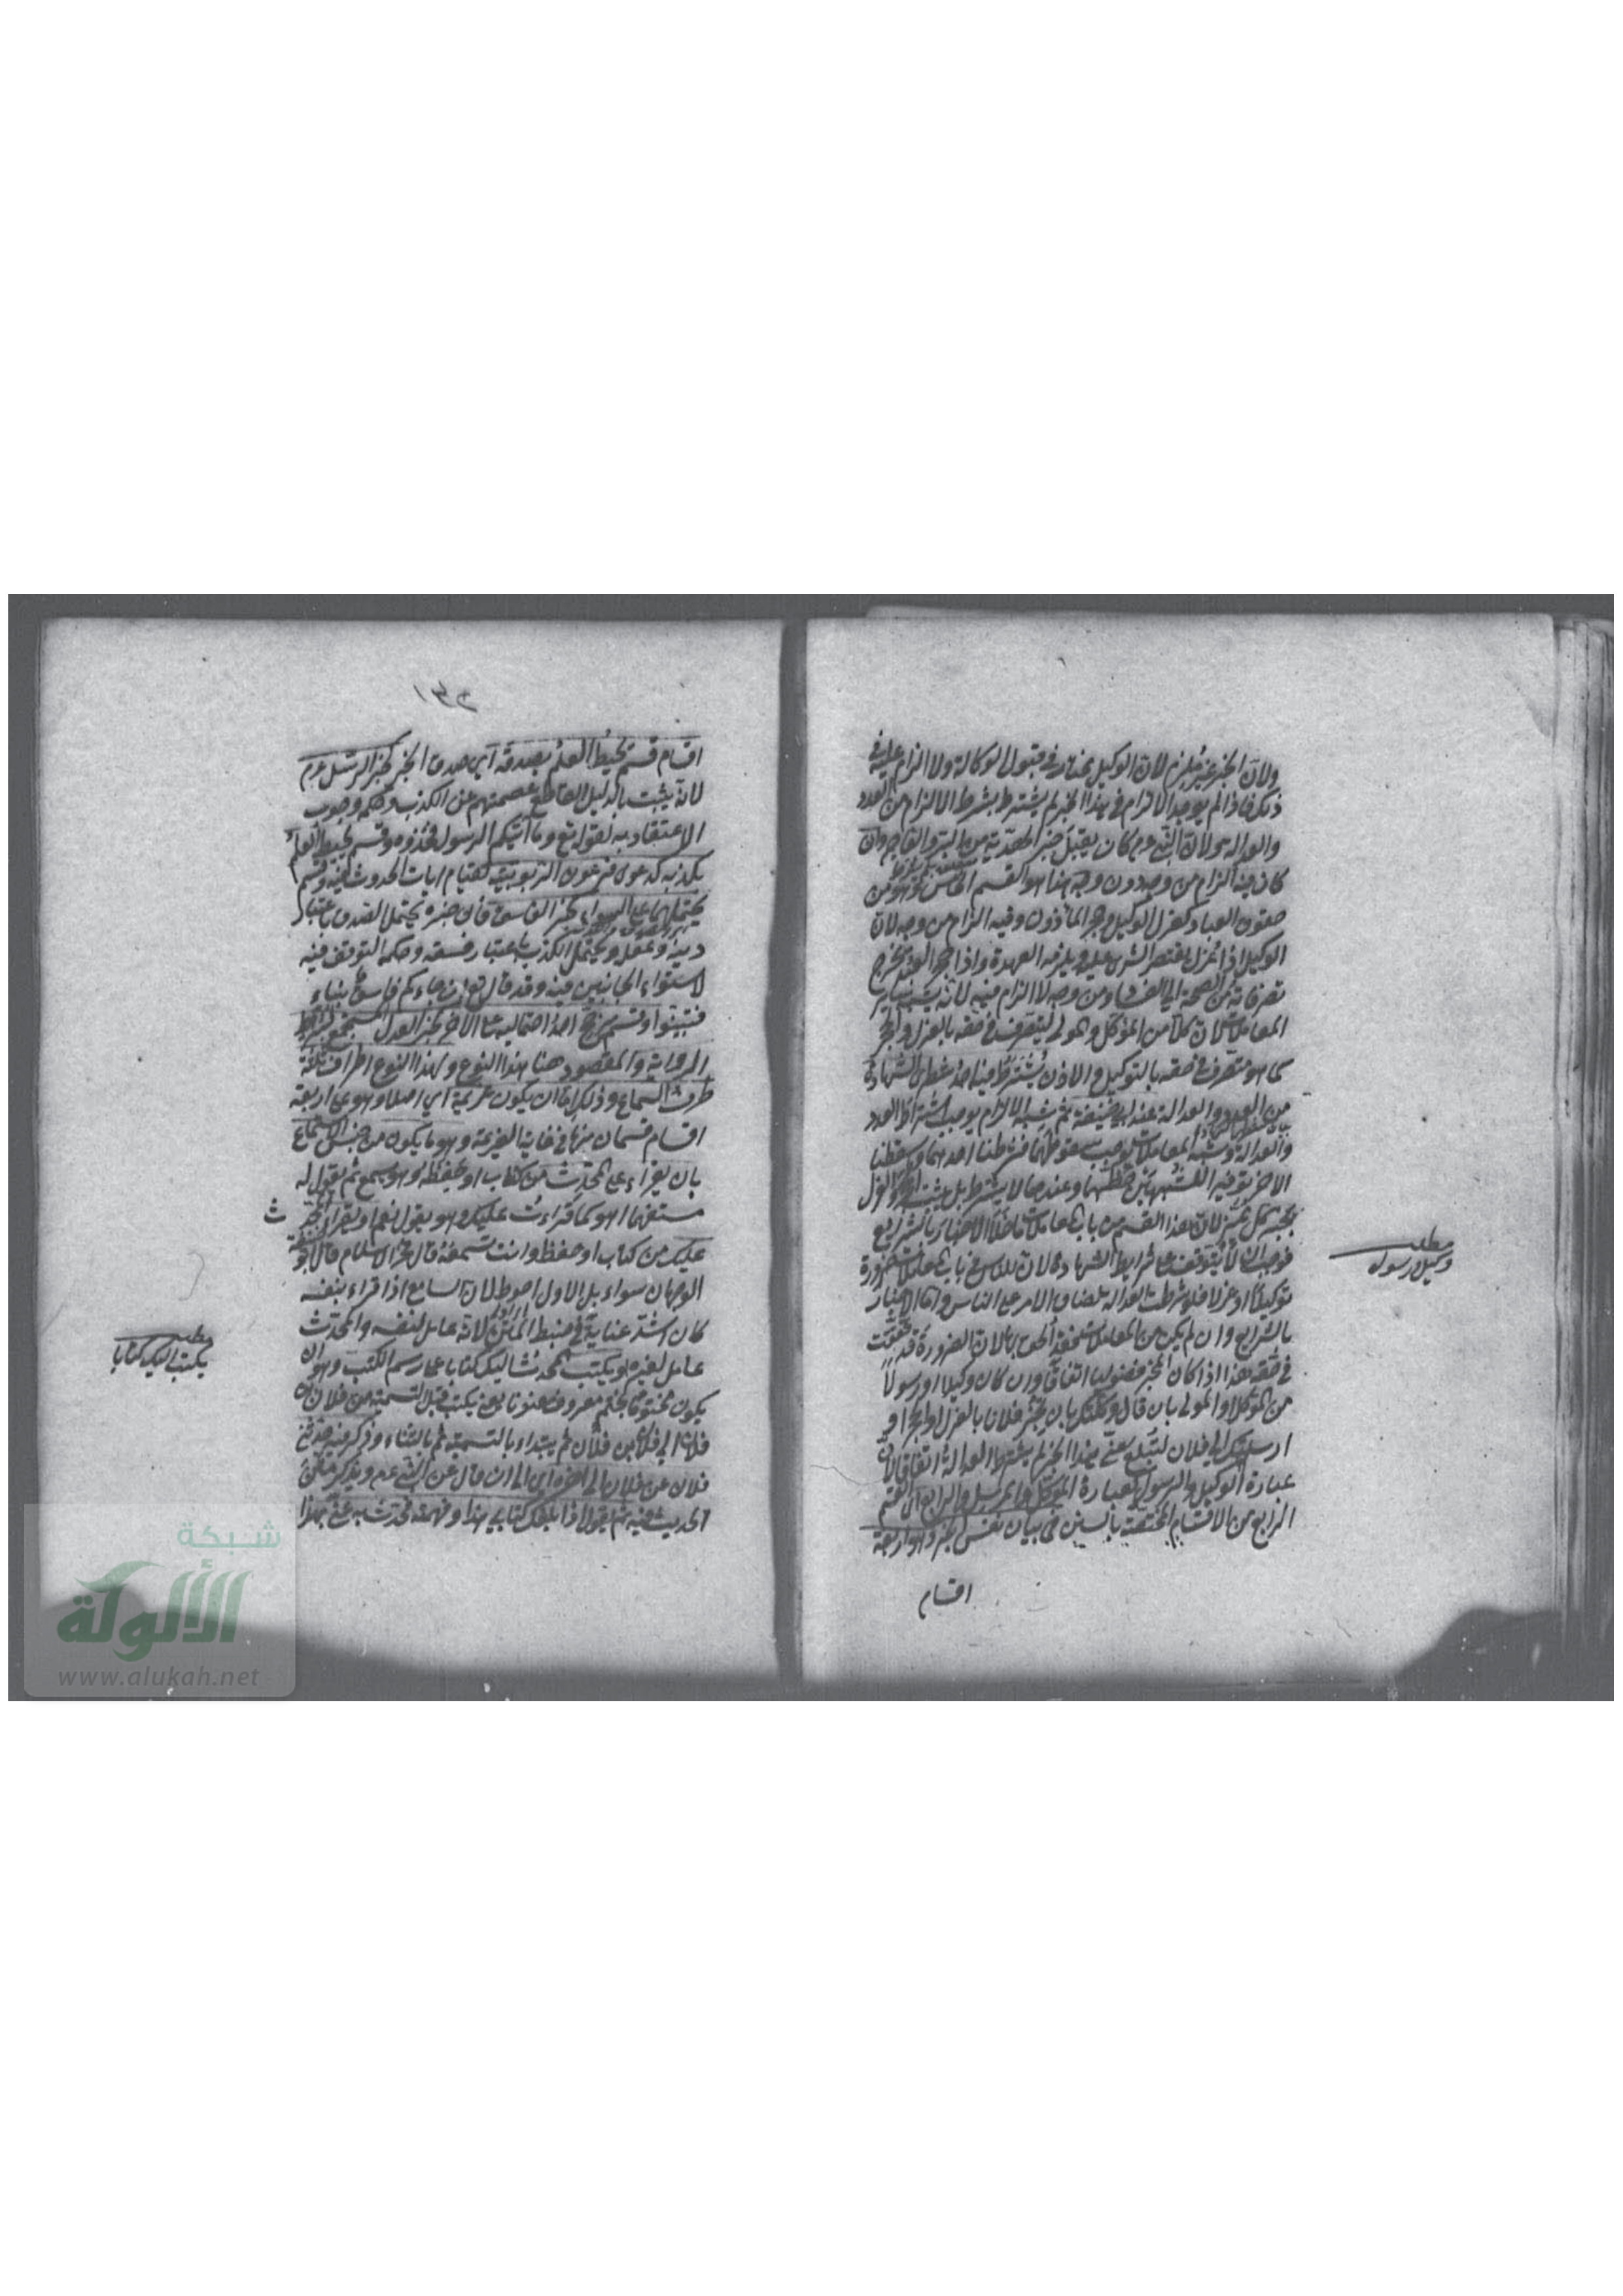 ولان الخبر غير ملزم لان الوكيل مختار في قبول الوكالة ولا الزام عليه في
ذلك فاذا لم يوجد الالزام في هذا الخبر لم يشترط بشرط الالزام من العدد
والعدالة ولان النبي عم كان يقبل خبر الهدية من البر والفاجر وان
كان فيه الزام من وجه دون وجه هذا هو القسم الخامس وهو من
حقوق العباد كعزل الوكيل وحجر المأذون وفيه الزام من وجه لان
الوكيل اذا عزل يقتصر الشرى عليه ويلزمه العهدة واذا حجر العبد يخرج
تصرفاته من الصحة الى الفساد ومن وجه لا الزام فيه لانه يشبه سائر
المعاملات لان كلا من الموكل والمولى ليتصرف في حقه بالعزل والحجر
كما هو متصرف في حقه بالتوكيل والاذن يشترط فيه احد شطرى الشهادة
من العدد والعدالة عند ابي حنيفة ثم شبه الالزام يوجب اشتراط العدد
والعدالة وشبه المعاملات يوجب سقوطهما فشرطنا احدهما واسقطنا
الاخر توفيرا للشبهين حظهما وعندهما لا يشترط بل يثبت الحجر والعزل
بخبر كل مميز لان هذا القسم من باب المعاملات
فوجب ان لا يتوقف على شرايط الشهادة لان للناس في باب المعاملات ضرورة
توكيلا او عزلا فلو شرطت العدالة لضاق الامر على الناس واما الاخبار
بالشرايع وان لم يكن من المعاملات الحق بها لان الضرورة قد تحققت
في حقه هذا اذا كان المخبر فضوليا اتفاقا وان كان وكيلا او رسولا
من الموكل او المولى بان قال وكلتك بان تخبر فلانا بالعزل او الحجر او
ارسلتك الى فلان لتبلغ عني هذا الخبر لم يشترط العدالة اتفاقا لان
عبارة الوكيل والرسول كعبارة الموكل والمرسل والرابع اى القسم
الرابع من الاقسام المختصة بالسنن في بيان نفس الخبر وهو اربعة
اقسام
مطلب
وكيل ورسول
١٣٥
اقسام قسم يحيط العلم بصدقه اى صدق الخبر كخبر الرسل عم
لانه يثبت بالدليل القاطع عصمتهم عن الكذب وحكمه وجوب
الاعتقاد به لقوله تع وما آتيكم الرسول فخذوه وقسم يحيط العلم
بكذبه كدعوى فرعون الربوبية لقيام ايات الحدوث فيه وقسم
يحتملهما على السواء كخبر الفاسق فان خبره يحتمل الصدق باعتبار
دينه وعقله ويحتمل الكذب باعتبار فسقه وحكمه التوقف فيه
لاستواء الجانبين فيه وقد قال تع ان جاءكم فاسق بنباء
فتبينوا وقسم يرجح احد احتماليه على الاخر كخبر العدل المستجمع لشرائط
الرواية والمقصود هنا هذا النوع ولهذا النوع اطراف ثلثة
طرف السماع وذلك اما ان يكون عزيمة اى اصلا وهو على اربعة
اقسام قسمان منها في غاية العزيمة وهو ما يكون من جنس الاستماع
بان يقراء على المحدث من كتاب او حفظ وهو يسمع ثم يقول له
مستفهما اهو كما قراءت عليك وهو يقول نعم او يقراء المحدث
عليك من كتاب او حفظ وانت تسمعه قال فخر الاسلام قال ابو حنيفة
الوجهان سواء بل الاول احوط لان السامع اذا قراء بنفسه
كان اشد عناية في ضبط المتن لانه عامل لنفسه والمحدث
عامل لغيره او يكتب المحدث اليك كتابا على رسم الكتب وهو ان
يكون مختوما بختم معروف معنونا يعني يكتب قبل التسمية من فلان بن
فلان الى فلان بن فلان ثم يبتداء بالتسمية ثم بالثناء وذكر فيه حدثني
فلان عن فلان الى اخره اى الى ان قال عن النبي عم ويذكر متن
الحديث فيه ثم يقول اذا بلغك كتابي هذا وفهمته فحدث به عني بهذا
مطلب
يكتب اليك كتابا
شبكة
الألوكة
www.alukah.net